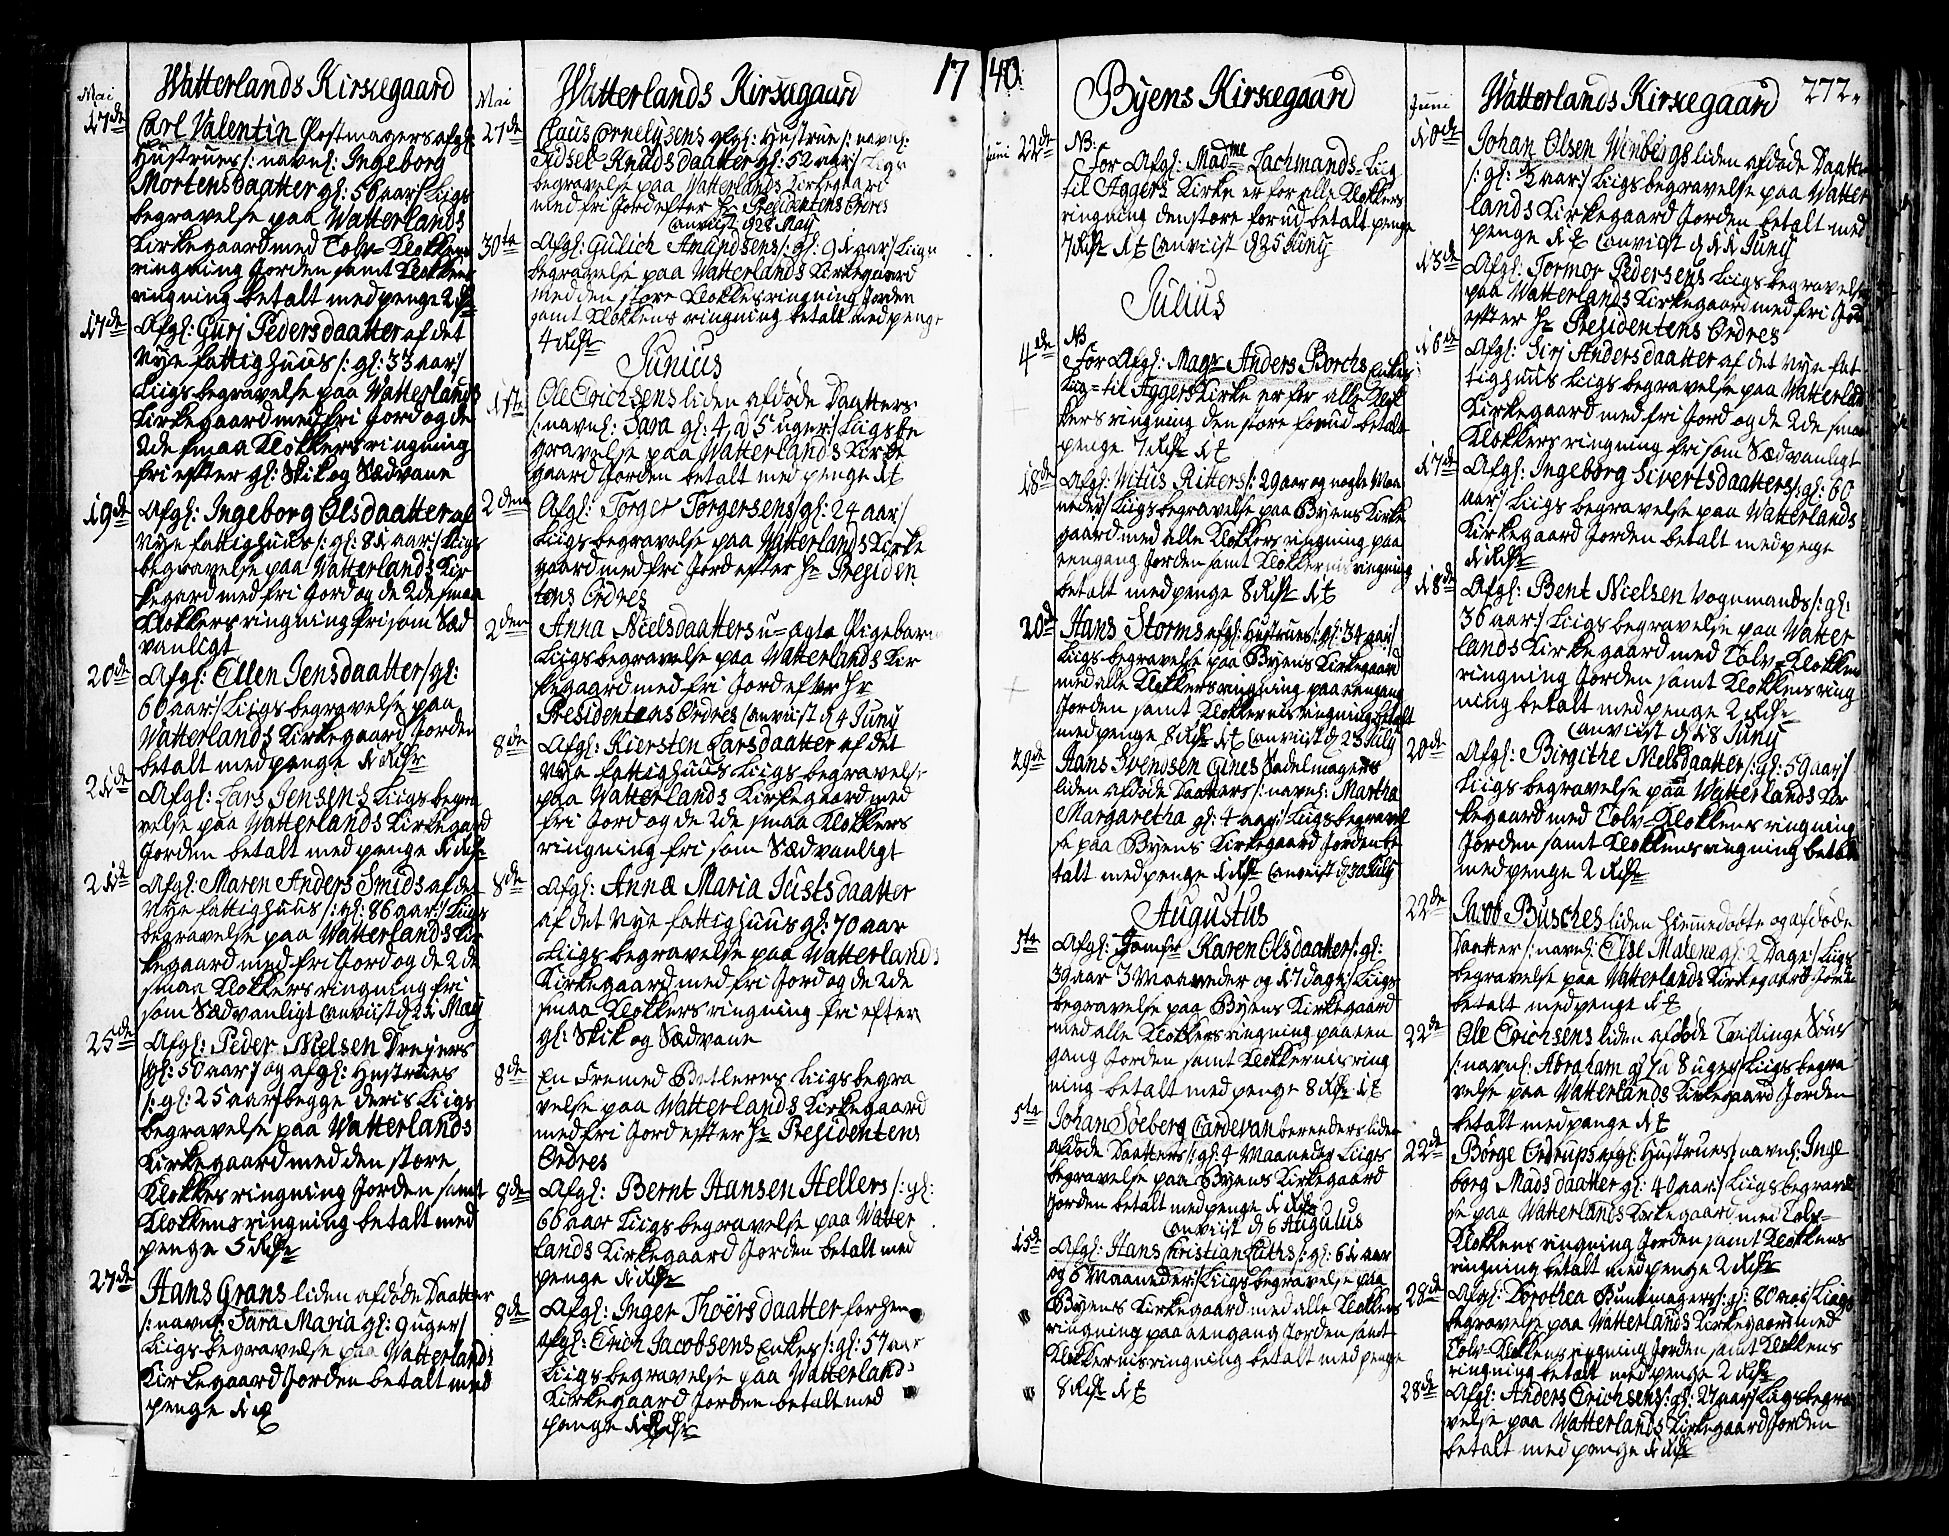 Watterlands Kirkegaard
Mai
17de Carl Valentin Postmagers afgl:
Hustrues /: navnl: Ingeborg
Mortensdaatter gl: 56 aar/ Liigs
begravelse paa Watterlands
Kirkegaard med Tolv-Klokkens
ringning Jorden samt Klokkens
ringning betalt med penge 2 Rdr
17de Afgl: Gurj Pedersdaatter af det
Nye fattighuus /: gl: 33 aar:/
Liigs begravelse paa Watterlands
Kirkegaard med fri Jord og de
2de smaa Klokkers ringning
fri efter gl: Skik og Sædvane
19de Afgl: Ingeborg Olsdaatter af
Nye fattighuus /: gl: 81 aar:/ Liigs
begravelse paa Watterlands Kir
kegard med fri Jord og de 2de smaa
Klokkers ringning fri som Sæd
vanligt
20de Afgl: Ellen Jensdaatter /: gl:
60 aar:/ Liigs begravelse paa
Watterlands Kirkegaard Jorden
betalt med penge 1 Rdr
21de Afgl: Lars Jensens Liigs begra
velse paa Watterlands Kirkegaard
Jorden betalt med penge 1 Rdr
21de Afgl: Maren Anders Smids af det
Nye fattighuus /: gl: 86 aar:/ Liigs
begravelse paa Watterlands Kir
kegaard med fri Jord og de 2de
smaa Klokkers ringning fri
som Sædvanligt Anviist d 21 May
25de Afgl: Peder Nielsen Drejers
/: gl: 50 aar:/ og afgl: Hustrues
/: gl: 25 aar/ begge deris Liigs
begravelse paa Watterlands
Kirkegaard med den store
Klokkes ringning Jorden samt
Klokkens ringning betalt med
penge 5 Rdr
27de Hans Grans liden afdøde Daatter
/: navnl: Sara Maria gl: 9 uger/
Liigs begravelse paa Watterlands
Kirkegaard Jorden betalt med
penge 1

Watterlands Kirkegaard 17
Mai
27de Claus Cornelysens afgl: Hustrue /: navnl:
Sidsel Knudsdaatter gl: 52 aar/ Liigs
begravelse paa Watterlands Kirkegaard
med fri Jord efter Hr Presidentens Ordres
Anviist d 28 May
30te Afgl: Gulich Amundsens /: gl: 91 aar/ Liigs
begravelse paa Watterlands Kirkegaard
med den store Klokkes ringning Jorden
samt Klokkens ringning betalt med penge
4 Rdr
Junius
1ste Ole Erichsens liden afdøde Daatters
/: navnl: Sara gl: 4 a 5 uger:/ Liigs be
gravelse paa Watterlands Kirke
gaard Jorden betalt med penge
2den Afgl: Torger Torgersens /: gl: 24 aar:/
Liigs begravelse paa Watterlands Kirke
gaard med fri Jord efter Hr Presiden
tens Ordres
2den Anna Nielsdaatters u-ægte Pigebarns
Liigs begravelse paa Watterlands Kir
kegaard med fri Jord efter Hr
Presidentens Ordres Anviist d 4 Juny
8de Afgl: Kiersten Larsdaatter af det
Nye fattighuus Liigs begravelse
paa Watterlands Kirkegaard med
fri Jord og de 2de smaa Klokkers
ringning fri som Sædvanligt
8de Afgl: Anna Maria Justsdaatter
af det Nye fattighuus gl: 70 aar
Liigs begravelse paa Watterlands
Kirkegaard med fri Jord og de 2de
smaa Klokkers ringning fri efter
gl: Skik og Sædvane
8de En Fremed Betleres Liigs begra
velse paa Watterlands Kirkegaard
med fri Jord efter Hr Presidentens
Ordres
8de Afgl: Bernt Hansen Hellers /: gl:
66 aar Liigs begravelse paa Watter
lands Kirkegaard Jorden betalt med
penge 1 Rdr
8de Afgl: Inger Thoersdaatter forhen
afgl: Erich Jacobsens Enkes /: gl: 57 aar
Liigs begravelse paa Watterlands
Kirkegaard Jorden betalt med
penge 1 Rdr

40. Byens Kirkegaard
Juni 22de NB.
For Afgl: Madme Lachmands Liig
til Aggers Kirke er for alle Klokkers
ringning den store forud betalt penge
7 Rdr Anviist d 25 Juny
Julius
4de NB
For Afgl: Magr Anders Borchs
Liig til Aggers Kirke er for alle Klok
kers ringning den store forud betalt
penge 7 Rdr
18de Afgl: Vitus Ritters /: 29 aar og nogle Maa
neder/ Liigs begravelse paa Byens Kirke
gaard med alle Klokkers ringning paa
eengang Jorden samt Klokkernis ringning
betalt med penge 8 Rdr
20de Hans Storms afgl: Hustrues /: gl: 34 aar:/
Liigs begravelse paa Byens Kirkegaard
med alle Klokkers ringning paa eengang
Jorden samt Klokkernis ringning betalt
med penge 8 Rdr Anviist d 23 July
29de Hans Svendsen Gines Sadelmagers
liden afdøde Daatters /: navnl: Martha
Margaretha gl: 4 aar:/ Liigs begravel
se paa Byens Kirkegaard Jorden be
talt med penge 1 Rdr Anviist d 30 July
Augustus
5te Afgl: Jomfr Karen Olsdaatter /: gl:
39 aar 3 Maaneder og 17 dage:/ Liigs
begravelse paa Byens Kirkegaard
med alle Klokkers ringning paa een
gang Jorden samt Klokkernis ring
ning betalt med penge 8 Rdr
5te Johan Søeberg Cardevanbereeders liden
afdøde Daatters /: gl: 4 Maaneder Liigs
begravelse paa Byens Kirkegaard
Jorden betalt med penge 1 Rdr
Anviist d 6 Augulus
15de Afgl: Hans Christian Luths /: gl: 61 aar
og 6 Maaneder:/ Liigs begravelse paa
Byens Kirkegaard med alle Klokkers
ringning paa eengang Jorden samt
Klokkernis ringning betalt med penge
8 Rdr

Watterlands Kirkegaard 272.
Juni
10de Johan Olsen Winbergs liden afdøde Daatter
/: gl: 1/2 aar:/ Liigs begravelse paa Watter
lands Kirkegaard Jorden betalt med
penge Anviist d 11 Juny
13de Afgl: Tormor Pedersens Liigs begravelse
paa Watterlands Kirkegaard med fri Jord
efter Hr Presidentens Ordres
16de Afgl: Sirj Andersdaatter af det Nye fat
tighuus Liigs begravelse paa Watterlands
Kirkegaard med fri Jord og de 2de smaa
Klokkers ringning fri som Sædvanligt
17de Afgl: Ingeborg Sivertsdaatters /: gl: 60
aar:/ Liigs begravelse paa Watterlands
Kirkegaard Jorden betalt med penge
1 Rdr
18de Afgl: Bent Nielsen Vognmands /: gl:
36 aar:/ Liigs begravelse paa Watter
lands Kirkegaard med Tolv-Klokkens
ringning Jorden samt Klokkens ring
ning betalt med penge 2 Rdr
Anviist d 18 Juny
20de Afgl: Birgithe Nielsdaatter /: gl: 59 aar/
Liigs begravelse paa Watterlands Kir
kegaard med Tolv-Klokkens ringning
Jorden samt Klokkens ringning betalt
med penge 2 Rdr
22de Jacob Busches liden hiemmedøbte og afdøde
Daatter /: navnl: Else Malene gl: 2 Dage:/ Liigs
begravelse paa Watterlands Kirkegaard Jorden
betalt med penge
22de Ole Erichsens liden afdøde Tvillinge Søns
/: navnl: Abraham gl 7 a 8 uger/ Liigs begra
velse paa Watterlands Kirkegaard Jorden
betalt med penge
22de Børge Ostrups afgl: Hustrues /: navnl: Inge
borg Madsdaatter gl: 40 aar:/ Liigs begravel
se paa Watterlands Kirkegaard med Tolv-
Klokkens ringning Jorden samt Klokkens
ringning betalt med penge 2 Rdr
28de Afgl: Dorothea Buntmagers /: gl: 80 aar/ Liigs
begravelse paa Watterlands Kirkegaard med
Tolv-Klokkens ringning Jorden samt Klokkens
ringning betalt med penge 2 Rdr
28de Afgl: Anders Erichsens /: gl: 27 aar/ Liigs begra
velse paa Watterlands Kirkegaard Jorden
betalt med penge 1 Rdr